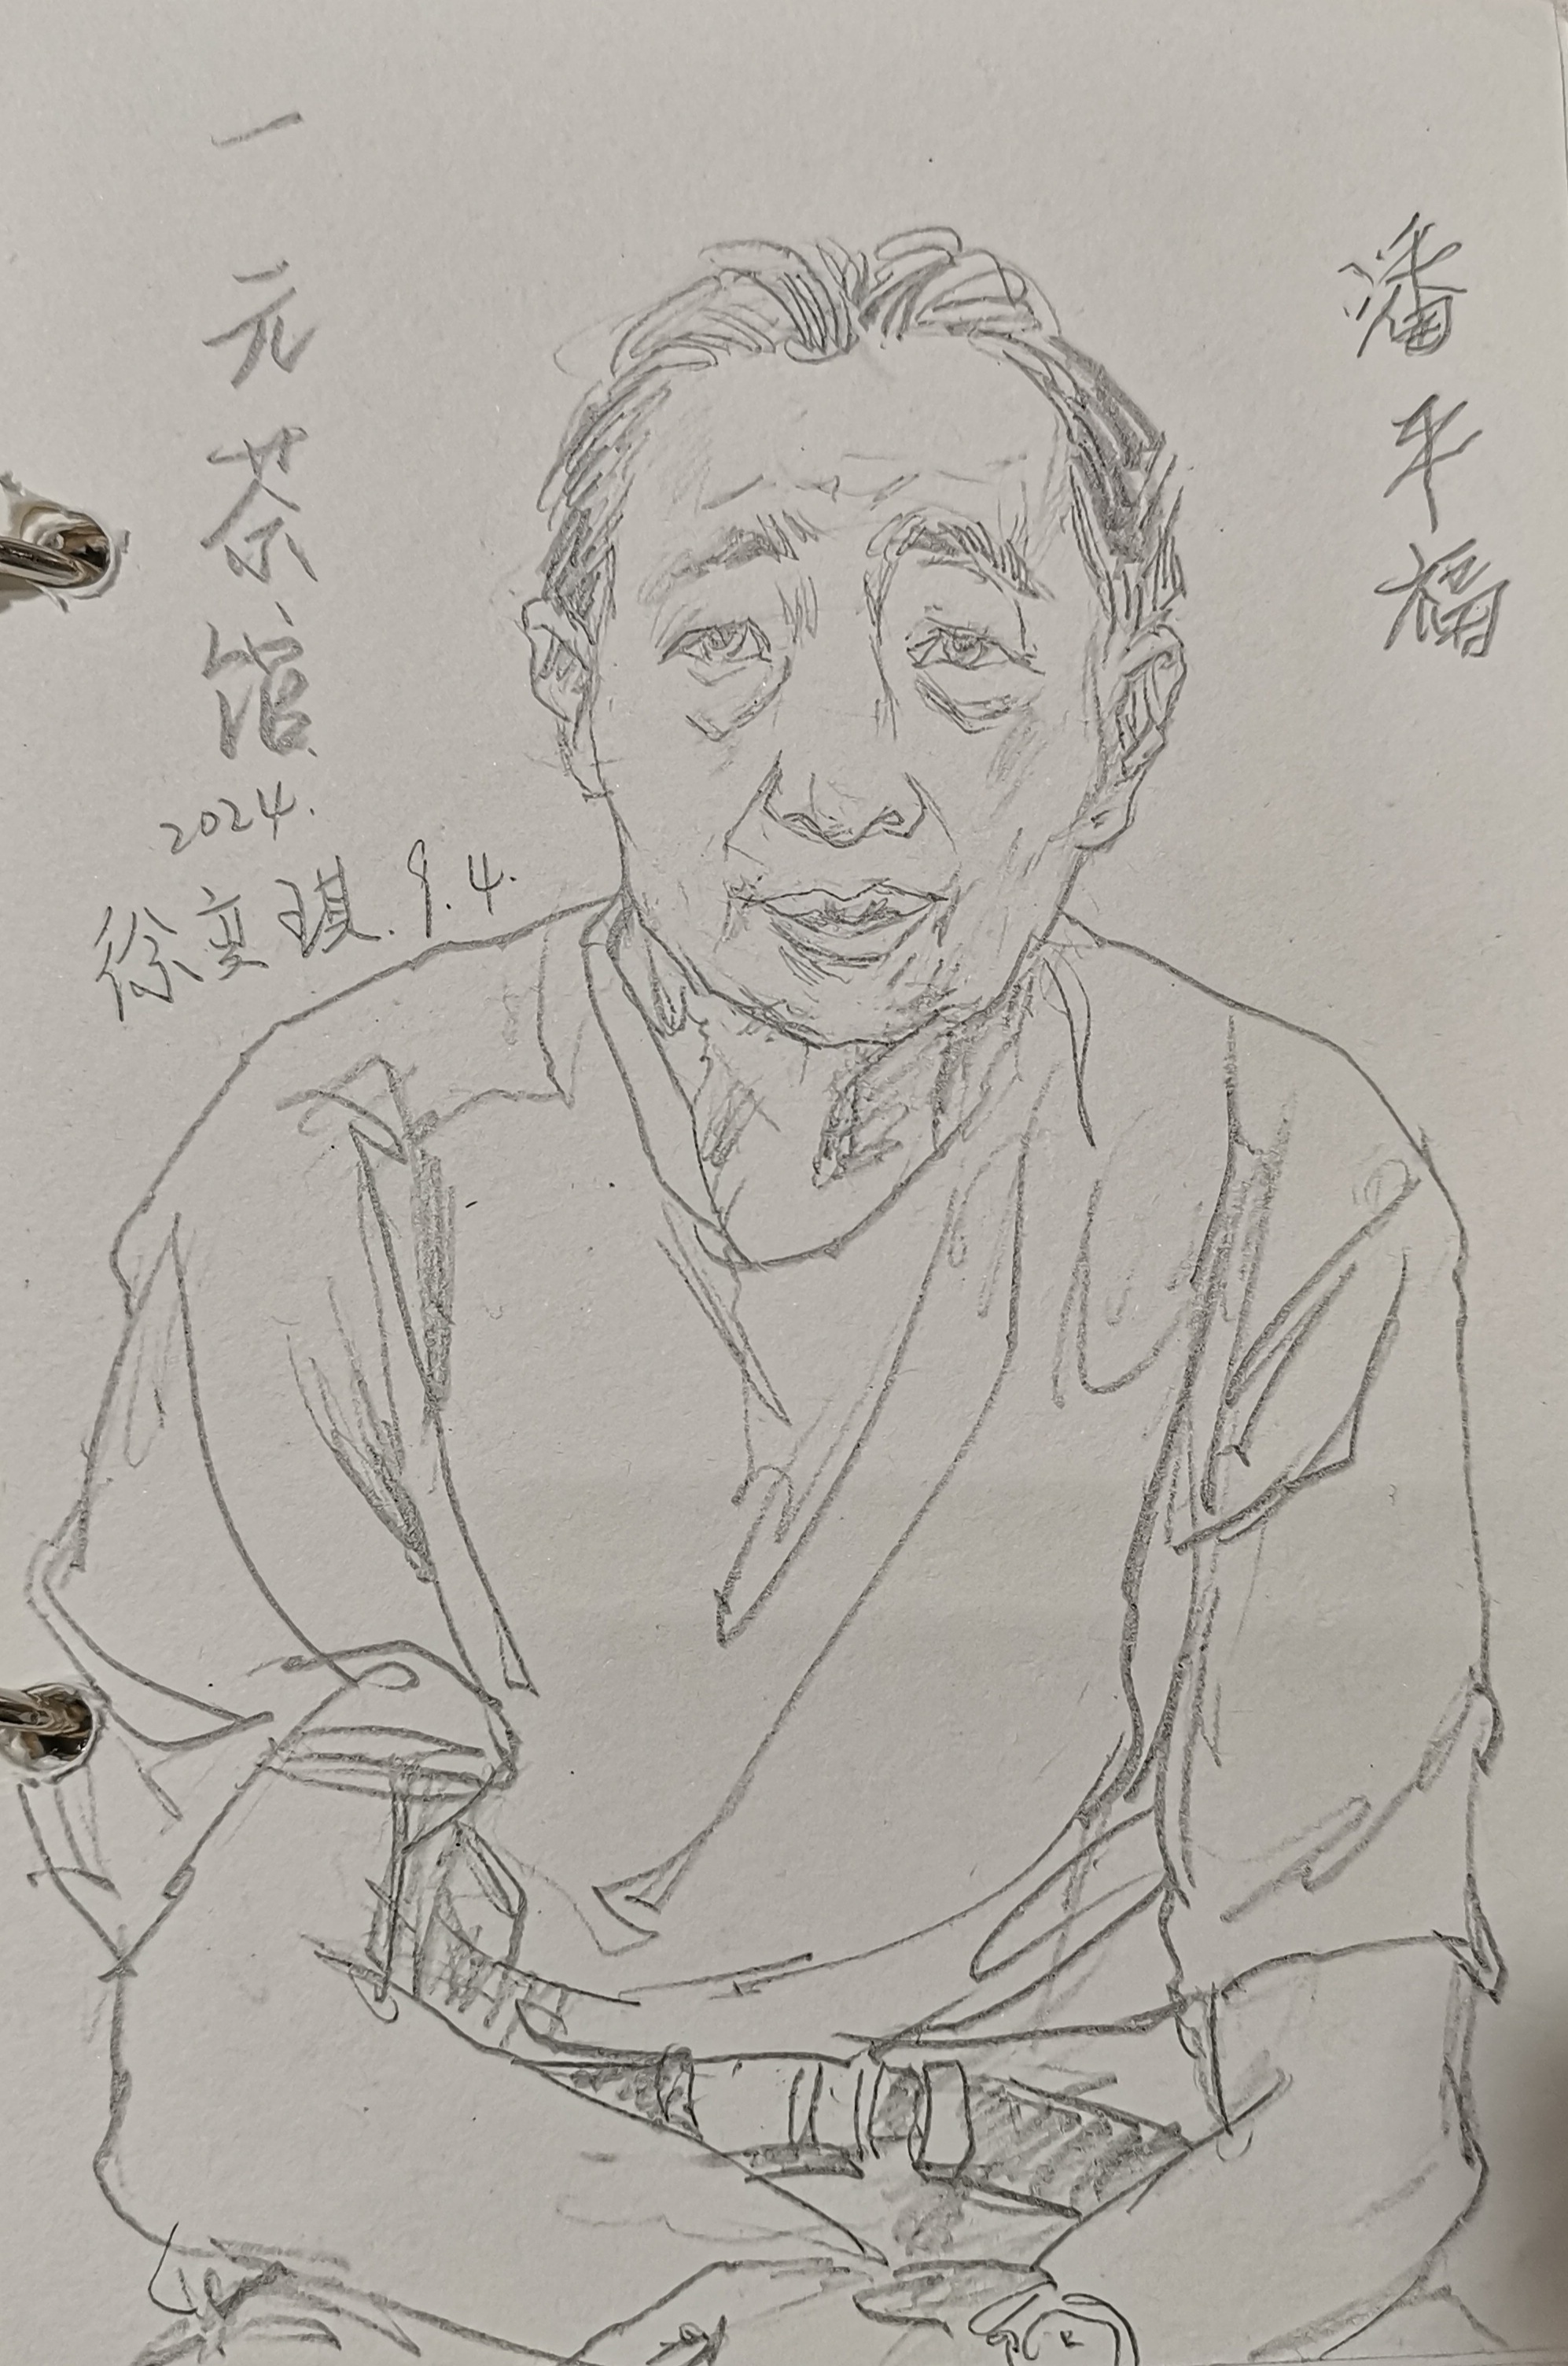 一元茶馆
2024.
徐奕琪.9.4.
潘平福